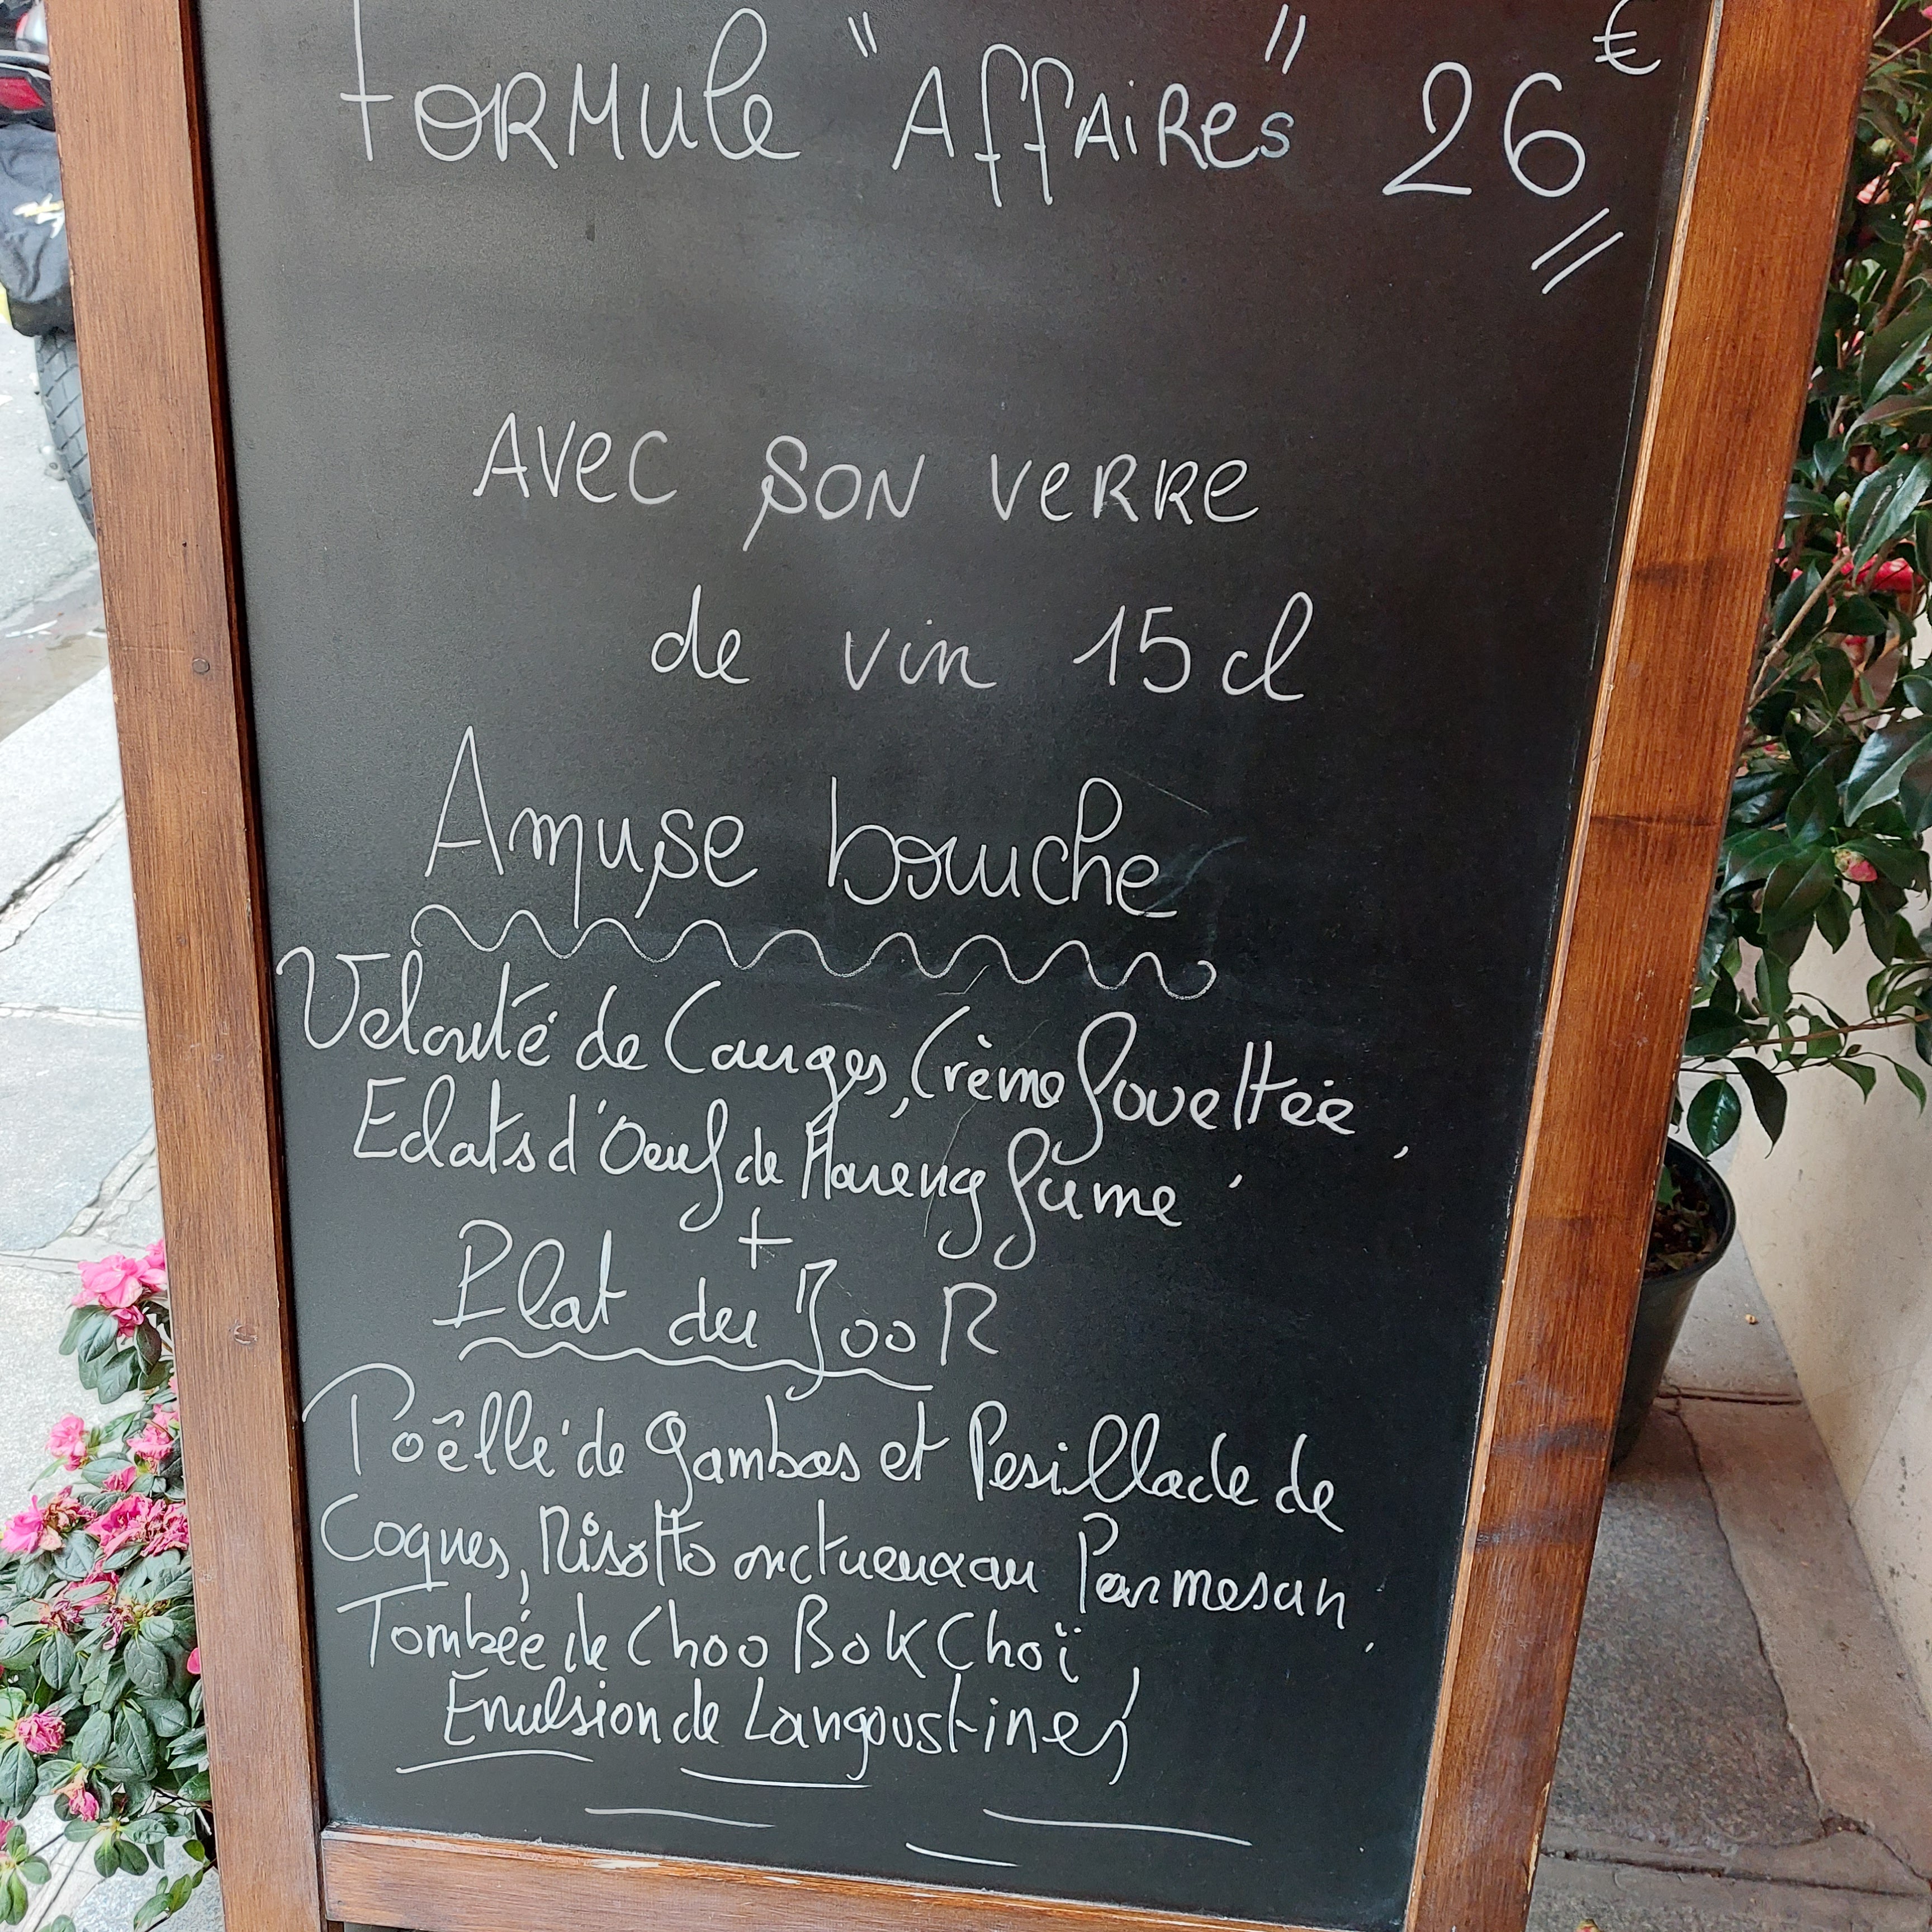 Formule "Affaires" 26€
Avec son verre
de vin 15 cl
Amuse bouche
Velouté de Courges, Crème fouettée,
Eclats d'Oeuf de Hareng fumé
+
Plat du JOOR
Poêllé de gambas et Persillade de
Coques, Risotto onctueux au Parmesan,
Tombée de Choo Bok Choï,
Emulsion de Langoustines